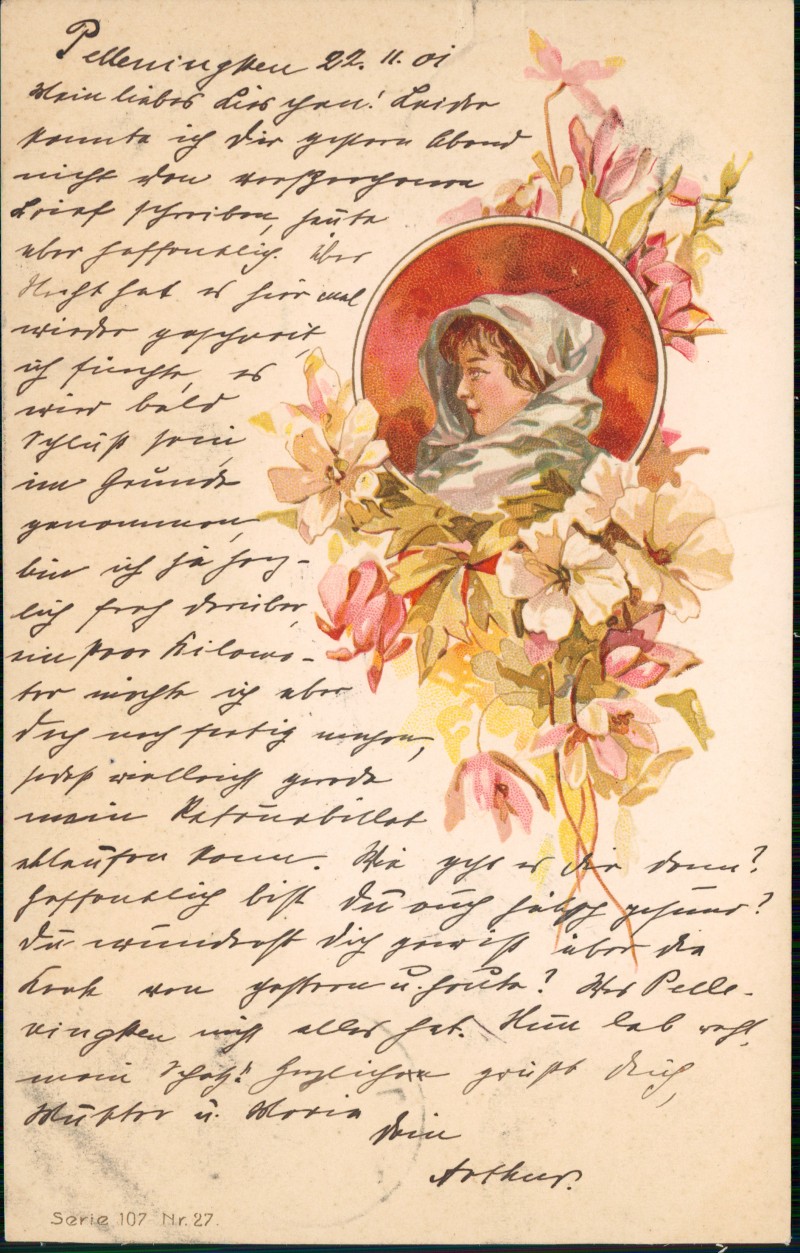 Pelleningken 22.11.01
Mein liebes Lieschen! Leider
konnte ich Dir gestern Abend
nicht den versprochenen
Brief schreiben, heute
aber hoffentlich. Über
Nacht hat es hier mal
wieder geschneit,
ich fürchte, es
wird bald
Schluß sein,
im Grunde
genommen,
bin ich ja herz-
lich froh darüber,
ein paar Kilome-
ter möchte ich aber
doch noch fertig machen,
jedoch vielleicht gerade
mein Retourbillet
ablaufen kann. Wie geht es Dir denn?
Hoffentlich bist Du auch hübsch gesund?
Du wunderst Dich gewiß über die
Karte von gestern u. heute? Was Pelle-
ningken nicht alles hat. Nun leb wohl,
mein Schatz! Herzlichen grüßt Dich,
Mutter u. Maria
Dein
Arthur.
Serie 107 Nr. 27.